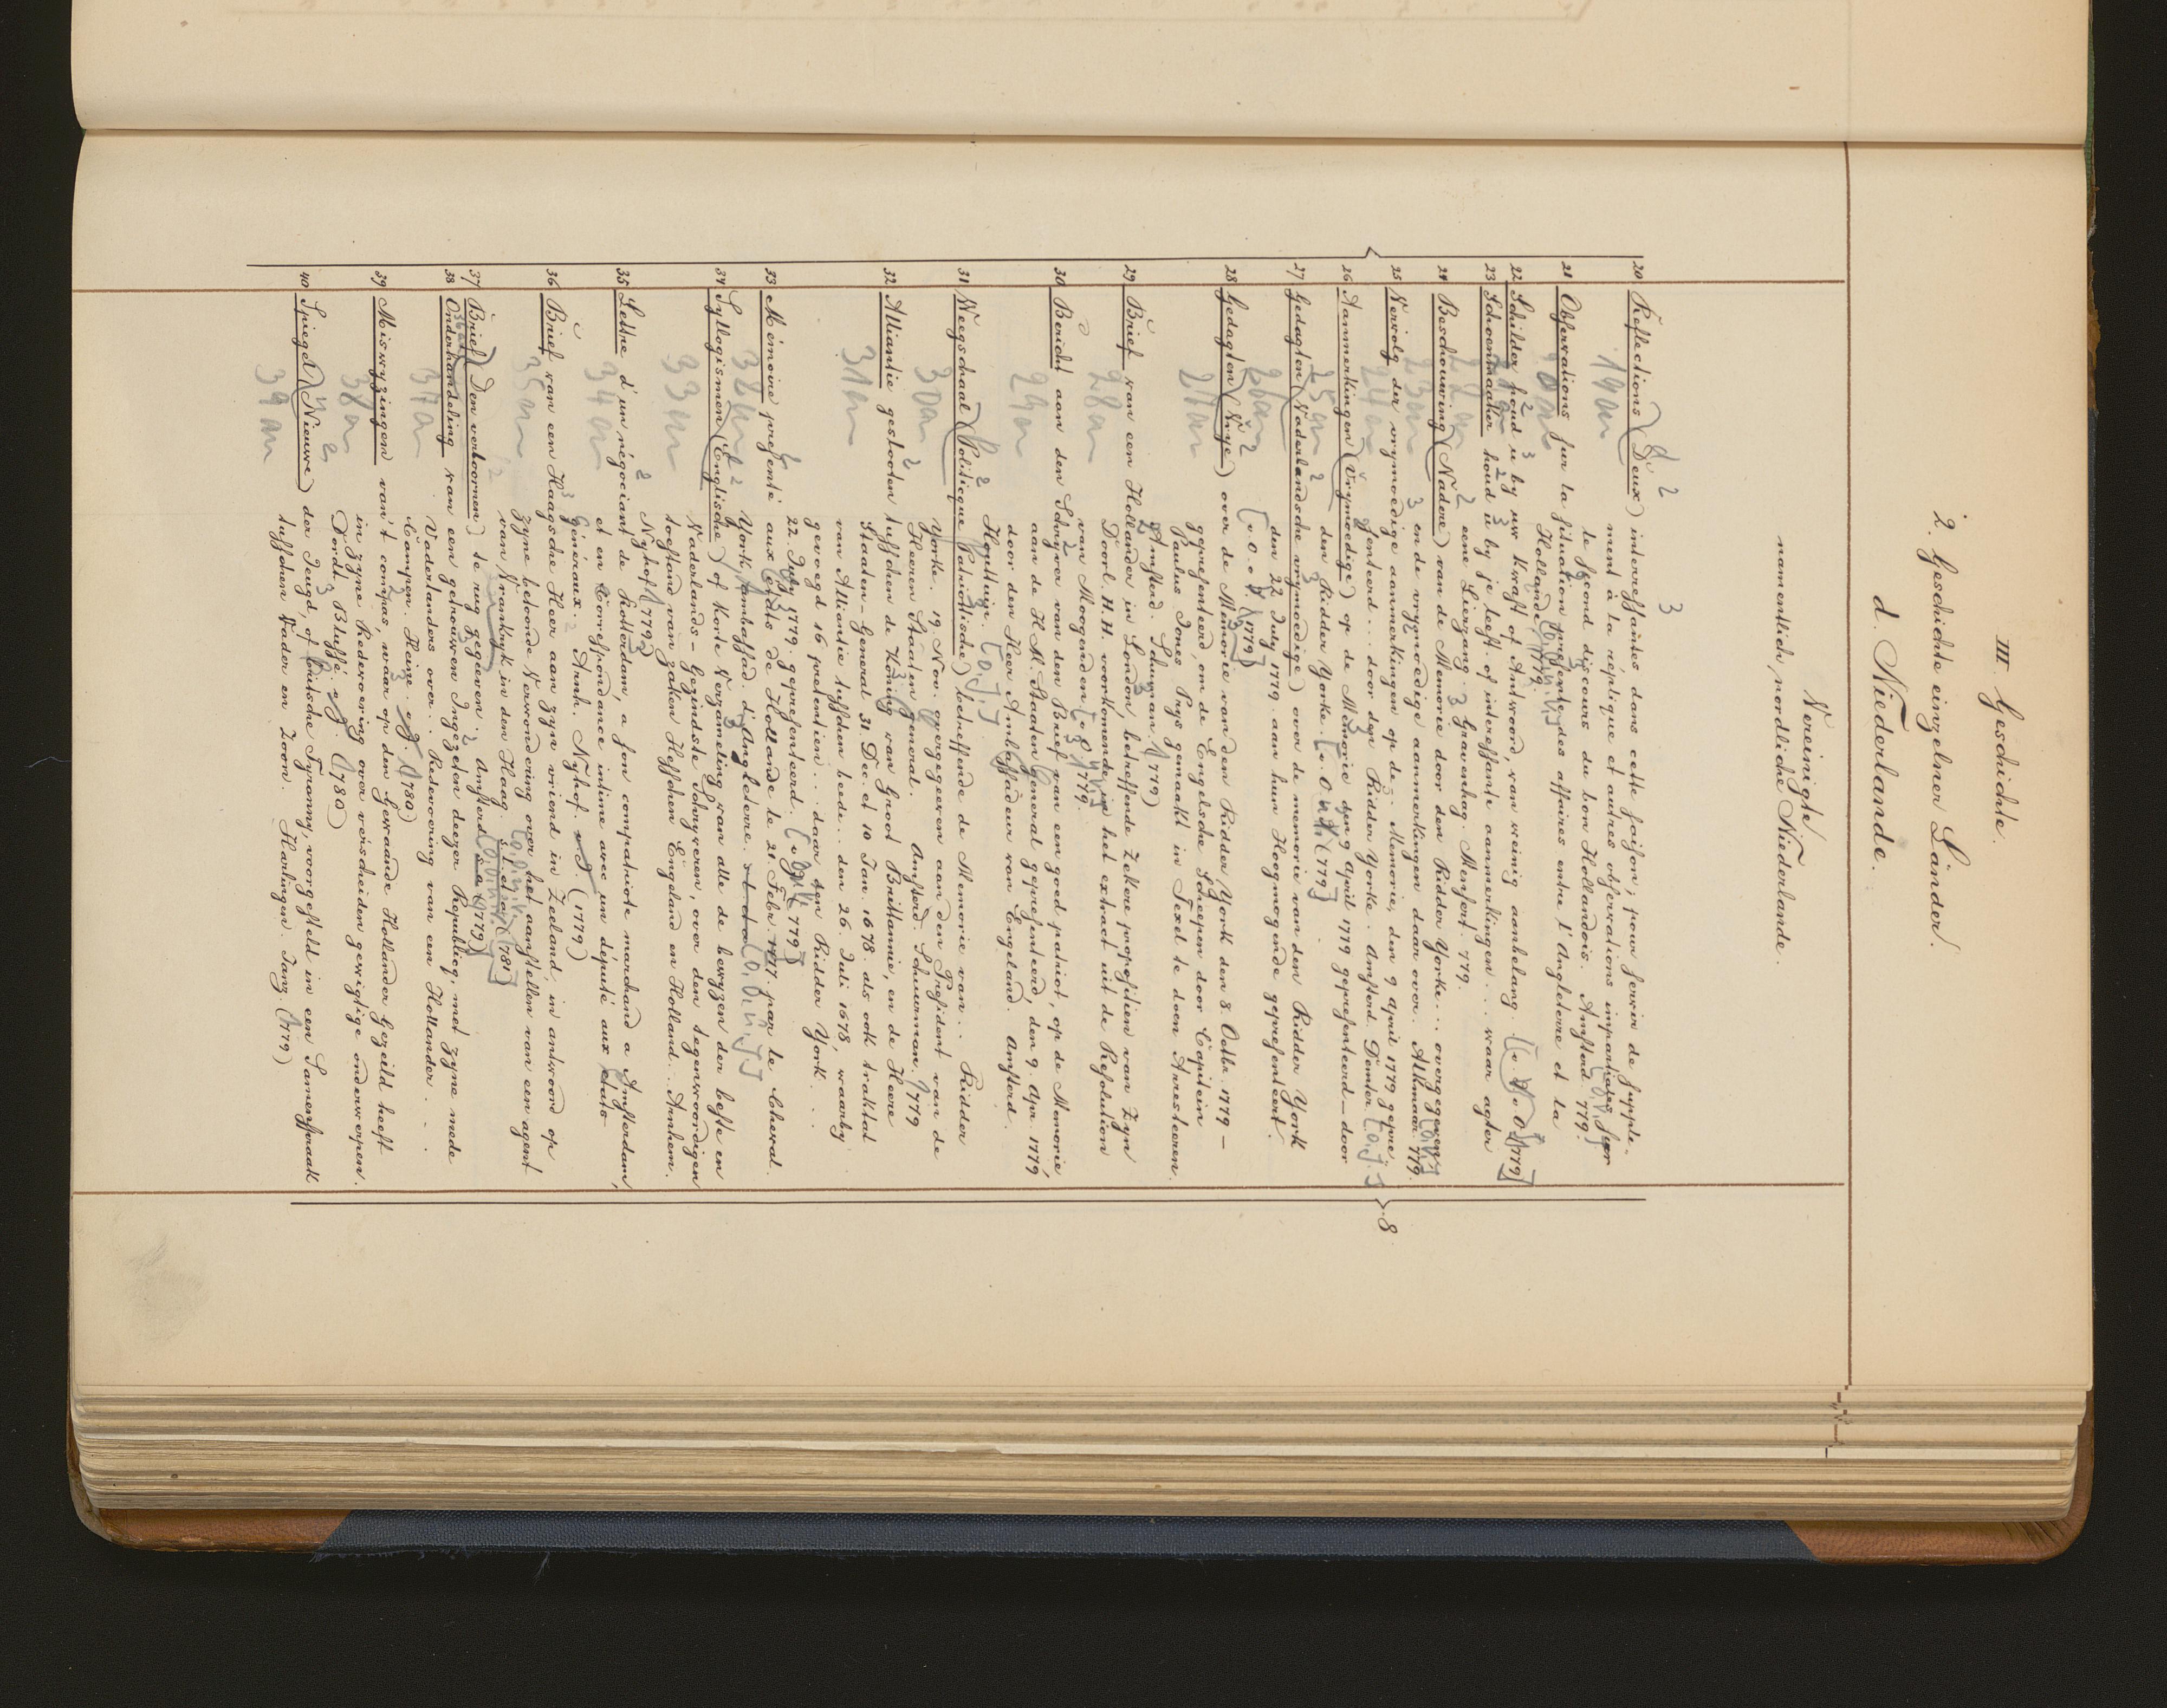 III. Geschichte.
2. Geschichte einzelner Länder.
d. Niederlande.
Vereinigte
namentlich nordliche Niederlande.
3
20 Reflections (Deux) interressantes dans cette saison; pour servir de supple-
ment à la réplique et autres observations impartiales sur
le second discours du bon Hollandois. Amsterd. 1779.
19 an
21 Observations sur la situation presente des affaires entre l'Angleterre et la
Hollande. 1779.
22 Schilder houd u by uw kwast of Antwoord, van weinig aanbelang. 1779]
23 Schoenmaaker houd u by je leest of interessante aanmerkingen ... waar agter
eene Lierzang. Gravenhag. Mensert. 779.
24 Beschouwing (Nadere) van de Memorie door den Ridder Yorke ... overgegeven
en de vrymoedige aanmerkingen daar over. Alkmaar 779.
25 Vervolg der vrymoedige aanmerkingen op de Memorie, den 9 April 1779 gepre-
senteerd ... door den Ridder Yorke. Amsterd. Demter
26 Aanmerkingen (Vrymoedige) op de Memorie den 9 April 1779 gepresenteerd — door
den Ridder Yorke. (1779]
25 an
27 Gedagten (Vaderlandsche vrymoedige) over de memorie van den Ridder York
den 22 July 1779 aan hun Hoogmogende gepresenteert.
(1779)]
26 an
28 Gedagten (Vrye) over de Memorie van den Ridder York den 8. Octbr. 1779 —
gepresenteerd, om de Engelsche Scheepen door Capitein
Paulus Jones Prys gemaakt in Texel te doen Arresteeren.
Amsterd. Schuman (1779)
27 an
29 Brief van een Hollander in London, betreffende zekere propositien van zyn
Doorl. H. H. voorkomende in het extract uit de Resolution
van Moogenden 1779.
28 an
30 Bericht aan den Schryver van den Brief van een goed patriot, op de Memorie
aan de H. M. Staaten General gepresenteerd, den 9. Apr. 1779,
door den Heer Ambassadeur van Engeland. Amsterd.
Houttuin.
29 an
31 Weegschaal (Politicque Patriottische) betreffende de Memorie van .. Ridder
Yorke. 19. Nov. overgegeeven aan den President van de
Heeren Staaten general. Amsterd. Schuurman. 1779
30 an
32 Alliantie geslooten tusschen de Koning van Groot Brittannie, en de Heere
Staaten-General 31. Dec. et 10 Jan. 1678. als ook traktat
van Alliantie tusschen beede .. den 26. Juli 1678, waarby
gevoegd 16 pretentien .. daar den Ridder York ..
22. July 1779. gepresenteerd. (1779]
31 an
33 Mémoire presenté aux etats de Hollande le 21. Febr. 1777. par le Cheval.
York, Ambassad. d'Angleterre.
32 an
34 Syllogismen (Englische) of korte Verzameling van alle de bewyzen der beste en
Vaderlands-Gezindste Schryveren, over den tegenwoordigen
toestand van zaken tusschen Engeland en Holland. Arnhem.
Nyhof (1779)
33 an
35 Lettre d'un négociant de Rotterdam, a son compatriote marchand a Amsterdam,
et en Correspondance intime avec un député aux etats
généraux. Arnh. Nyhof. (1779)
34 an
36 Brief van een Haagsche Heer aan zyn vriend in Zeeland, in antwoord op
zyne betoonde Verwondering over het aanstellen van een agent
van Vrankryk in den Haag. (1781)]
35 an
37 Brief (Den verloornen) te rug gegeven. Amsterd (1779)]
36 an
38 Onderhandeling van een getrouwen Ingezeten deezer Republicq, met zyne mede
Vaderlanders over .. Redevoering van een Hollander ..
Campen. Heinz. (1780)
37 an
39 Miswyzingen van't compas, waar op den Gewaande Hollander Gezeild heeft
in zyne Redevoering over verscheiden gewigtige onderwerpen.
Dordt. Blussé. (1780)
38 an
40 Spiegel (Nieuwe) der Jeugd, of Brutsche Tyranny, voorgesteld in een Samenspraak
tusschen Vader en Zoon. Harlingen. Janz. (1779)
39 an
8